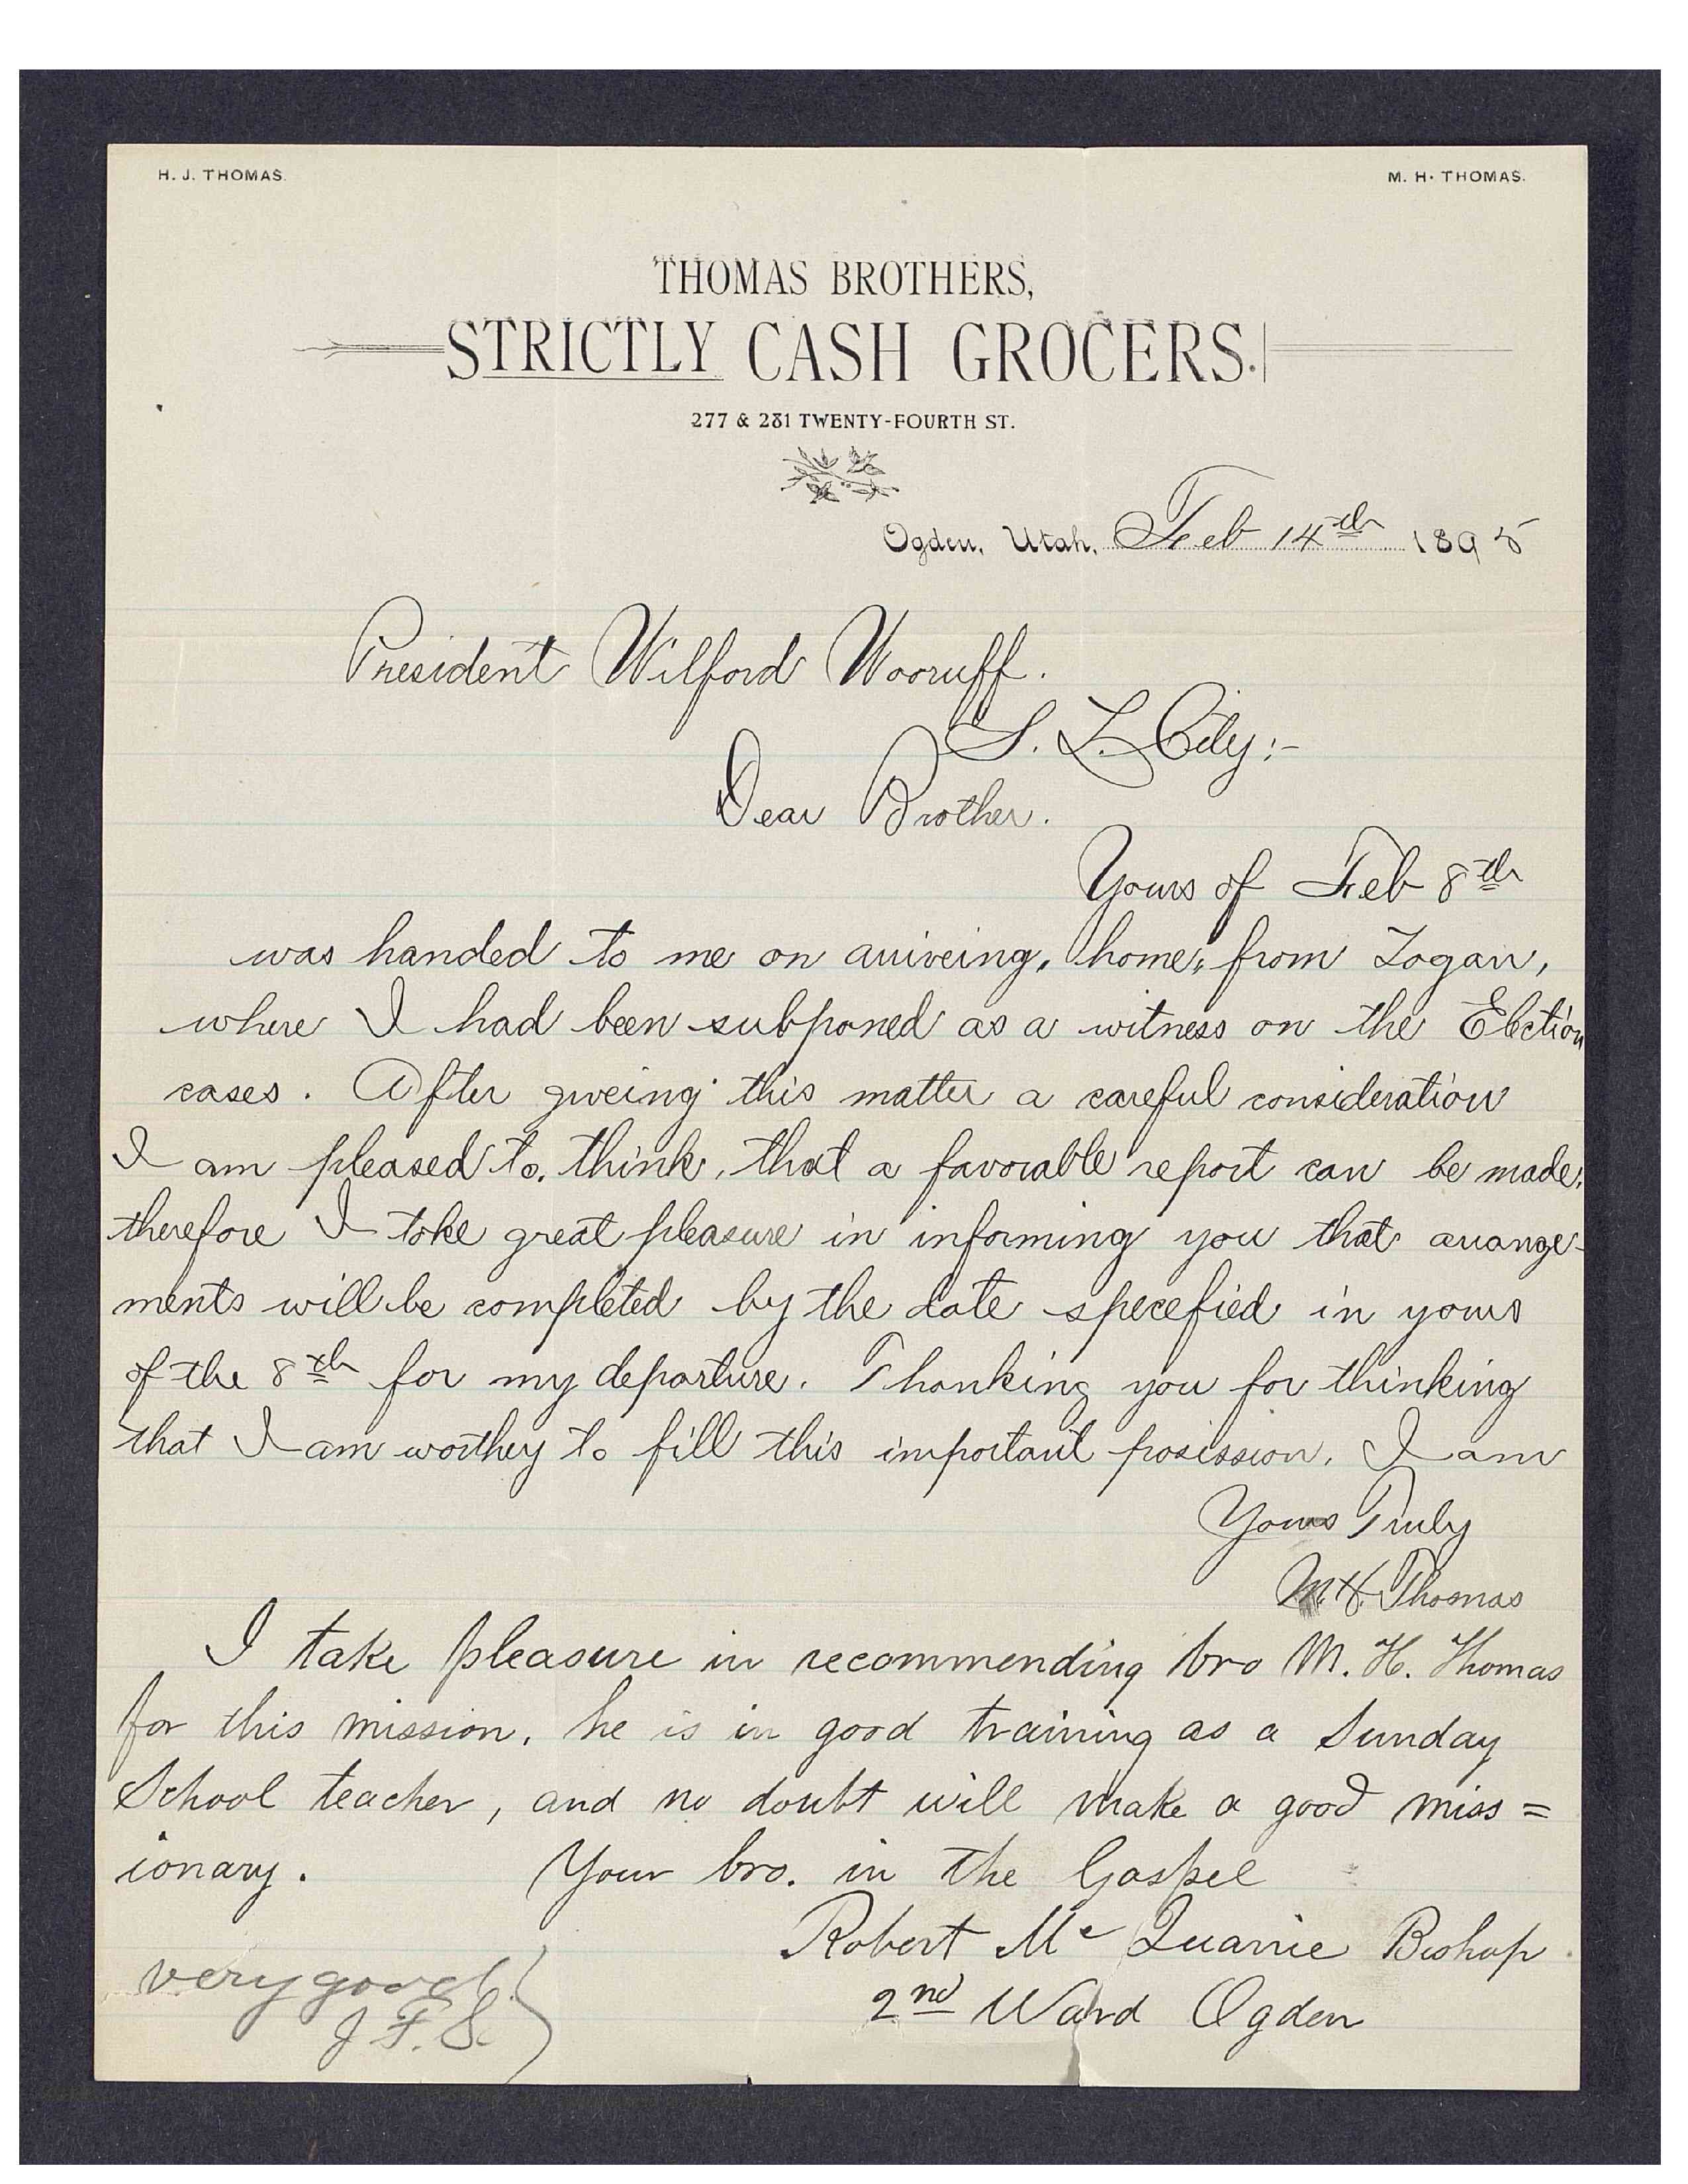 H. J. THOMAS.
M. H. THOMAS.
THOMAS BROTHERS,
STRICTLY CASH GROCERS.
277 & 281 TWENTY-FOURTH ST.
Ogden, Utah, Feb 14th 1895
President Wilford Wooruff.
S. L. City:-
Dear Brother.
Yours of Feb 8th
was handed to me on ariveing, home, from Logan,
where I had been subponed as a witness on the Election
cases. After giveing this matter a careful consideration
I am pleased to, think, that a favorable report can be made;
therefore I take great pleasure in informing you that arange-
ments will be completed by the date specefied in yours
of the 8th for my departure. Thanking you for thinking
that I am worthey to fill this important posission, I am
Yours Truly
M. H. Thomas
I take pleasure in recommending bro M. H. Thomas
for this mission, he is in good training as a Sunday
School teacher, and no doubt will make a good miss=
ionary. Your bro. in the Gospel
Robert Mc Quarrie Bishop.
2nd Ward Ogden
very good.
J. F. S.